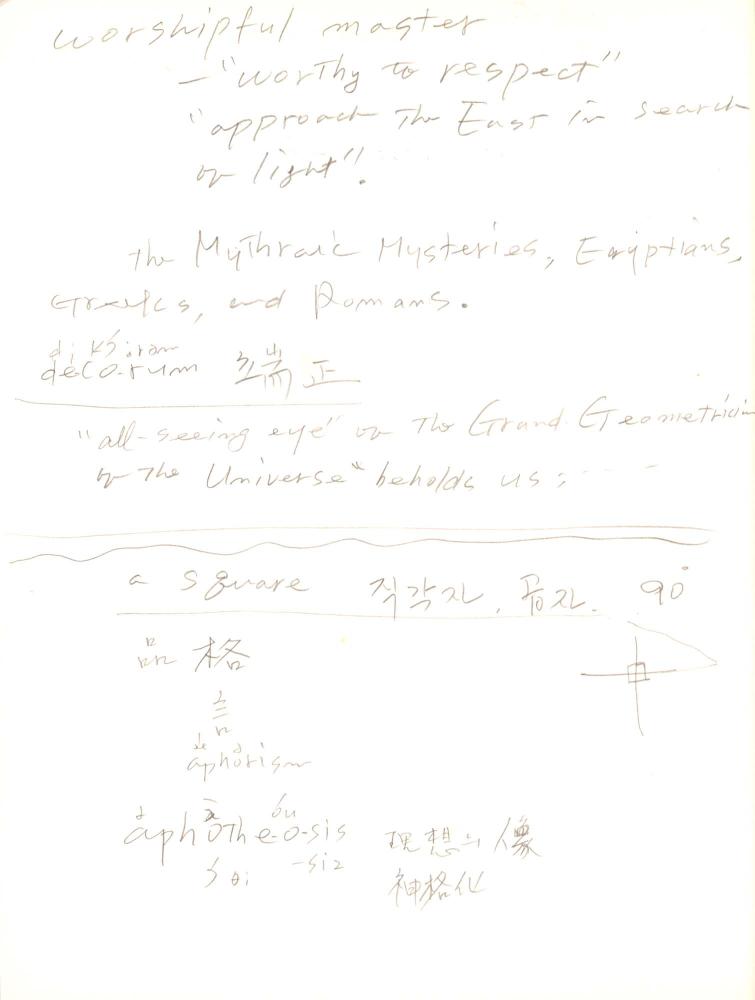 worshipful master
— "worthy to respect"
"approach the East in search
of light".
the Mythraic Mysteries, Egyptians,
Greeks, and Romans.
decorum 端正
"all-seeing eye" of The Grand Geometrician
of the Universe" beholds us;
a square 직각자, 곱자. 90°
品格
aphorism
aphothe-o-sis 理想의 像
-siz 神格化